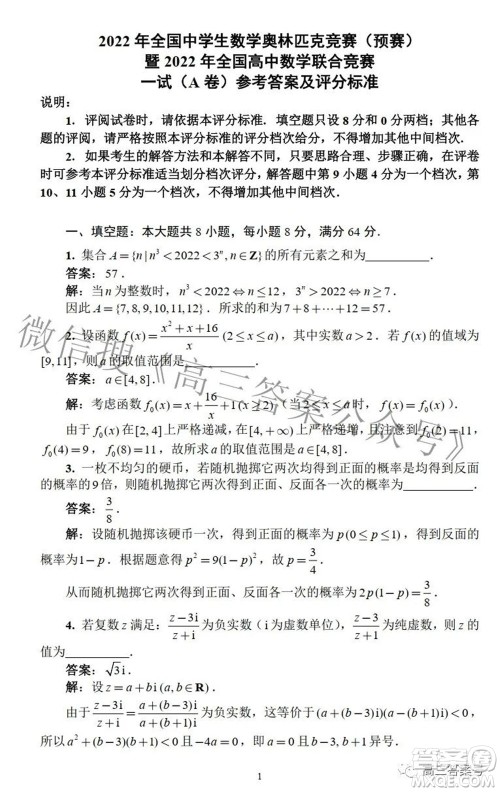 2022 年全国中学生数学奥林匹克竞赛（预赛）
暨 2022 年全国高中数学联合竞赛
一试（A 卷）参考答案及评分标准
说明：
1. 评阅试卷时，请依据本评分标准. 填空题只设 8 分和 0 分两档；其他各
题的评阅，请严格按照本评分标准的评分档次给分，不得增加其他中间档次.
2. 如果考生的解答方法和本解答不同，只要思路合理、步骤正确，在评卷
时可参考本评分标准适当划分档次评分，解答题中第 9 小题 4 分为一个档次，第
10、11 小题 5 分为一个档次，不得增加其他中间档次.
一、填空题：本大题共 8 小题，每小题 8 分，满分 64 分.
1. 集合 A={n|n³<2022<3ⁿ,n∈Z}的所有元素之和为________.
答案：57.
解：当n为整数时，n³<2022⇔n≤12，3ⁿ>2022⇔n≥7.
因此 A={7,8,9,10,11,12}. 所求的和为 7+8+⋯+12=57.
2. 设函数 f(x)=(x²+x+16)/x (2≤x≤a)，其中实数 a>2. 若 f(x) 的值域为
[9,11]，则 a 的取值范围是________.
答案：a∈[4,8].
解：考虑函数 f₀(x)=x+16/x+1(x≥2)（当 2≤x≤a 时，f₀(x)=f(x)）.
由于 f₀(x) 在 [2,4] 上严格递减，在 [4,+∞) 上严格递增，且注意到 f₀(2)=11，
f₀(4)=9，f₀(8)=11，故 a 的取值范围是 a∈[4,8].
3. 一枚不均匀的硬币，若随机抛掷它两次均得到正面的概率是均得到反面
的概率的 9 倍，则随机抛掷它两次得到正面、反面各一次的概率为________.
答案：3/8.
解：设随机抛掷该硬币一次，得到正面的概率为 p(0≤p≤1)，得到反面的
概率为1−p. 根据题意得 p²=9(1−p)²，故 p=3/4.
从而随机抛掷它两次得到正面、反面各一次的概率为 2p(1−p)=3/8.
4. 若复数 z 满足：(z−3i)/(z+i) 为负实数（i 为虚数单位），(z−3)/(z+1) 为纯虚数，则 z 的
值为________.
答案：√3i.
解：设 z=a+bi (a,b∈R).
由于 (z−3i)/(z+i)=(a+(b−3)i)/(a+(b+1)i) 为负实数，这等价于 (a+(b−3)i)(a−(b+1)i)<0，
所以 a²+(b−3)(b+1)<0 且 −4a=0，即 a=0，且 b−3,b+1 异号.
1
微信搜《高三答案公众号》
答案圈
MXQE.COM
高三答案号